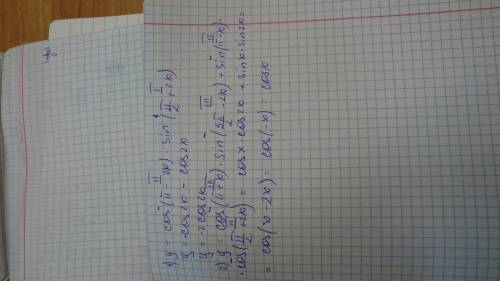 1) y = cos(π - 2x) · sin(π/2 + 2x)
y = -cos2x - cos2x
y = -2cos2x
2) y = cos(π + x) · sin(3π/2 - 2x) + sin(π - x) ·
· cos(π/2 + 2x) = cosx · cos2x + sinx · sin2x =
= cos(x - 2x) = cos(-x) cosx